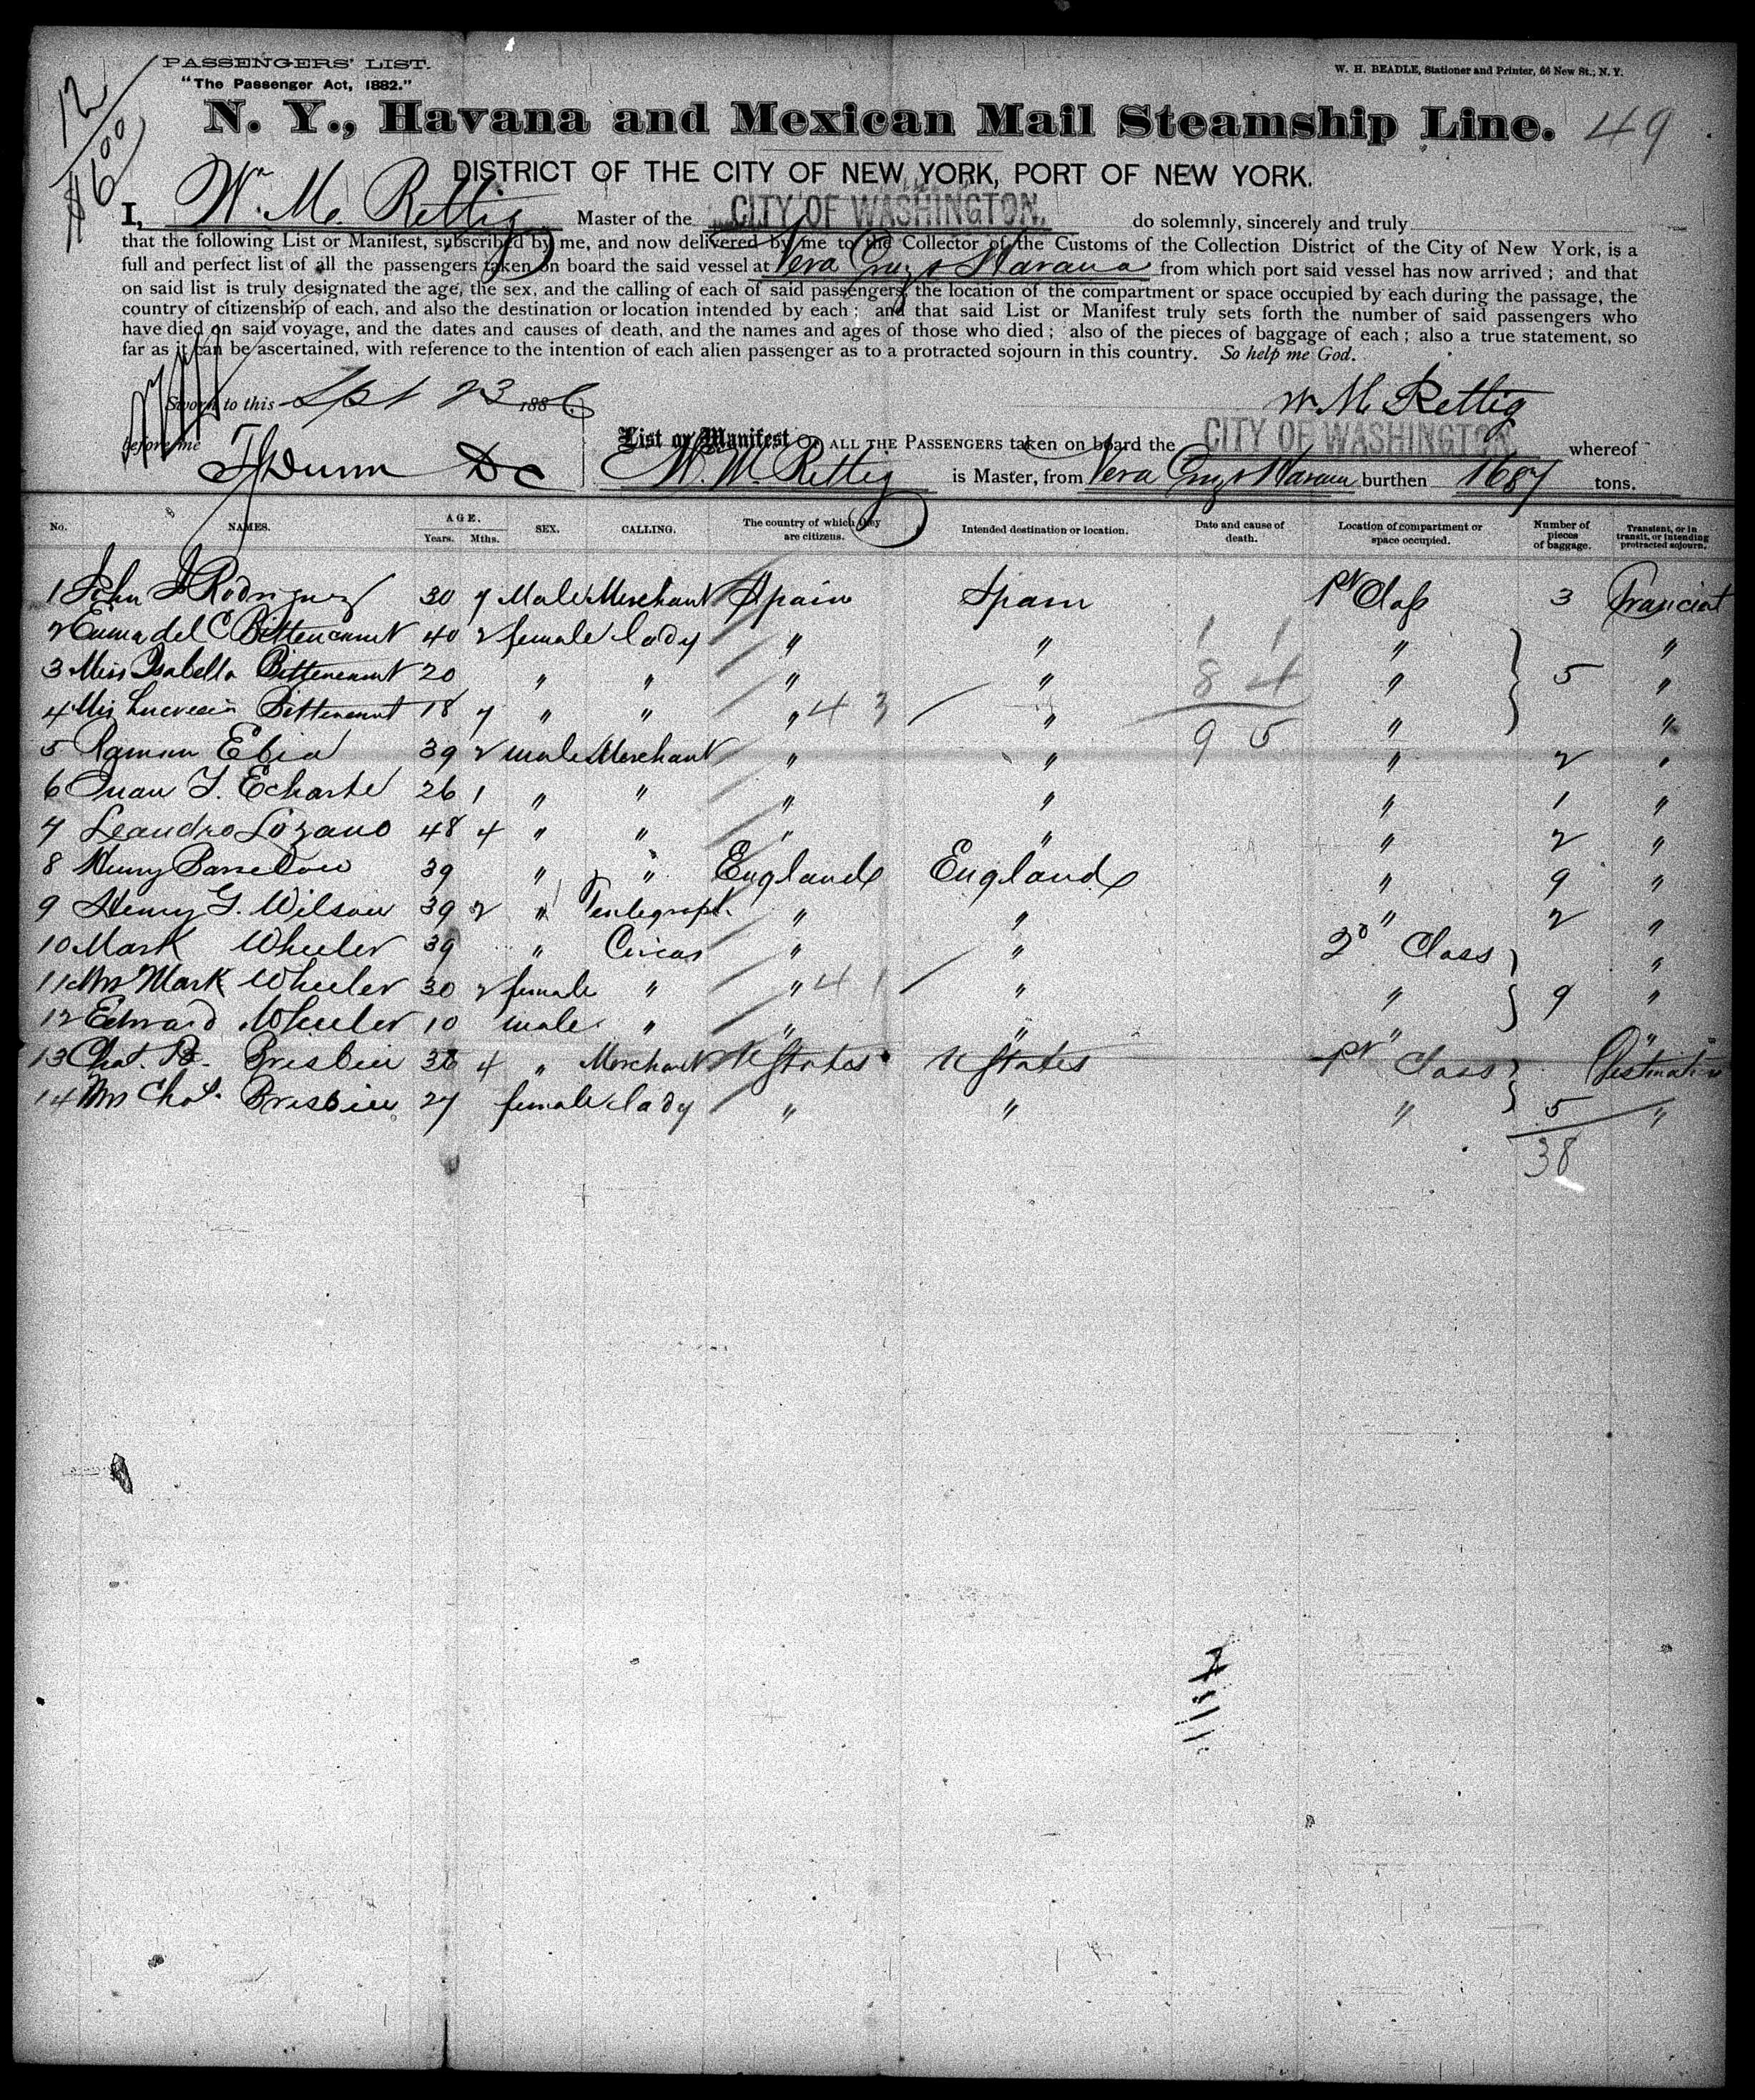 PASSENGERS' LIST.
"The Passenger Act, 1882."
W. H. BEADLE, Stationer and Printer, 66 New St., N. Y.
12
$600
N. Y., Havana and Mexican Mail Steamship Line. 49
DISTRICT OF THE CITY OF NEW YORK, PORT OF NEW YORK.
I, Wm. M. Rettig Master of the CITY OF WASHINGTON. do solemnly, sincerely and truly
that the following List or Manifest, subscribed by me, and now delivered by me to the Collector of the Customs of the Collection District of the City of New York, is a
full and perfect list of all the passengers taken on board the said vessel at Vera Cruz & Havana from which port said vessel has now arrived; and that
on said list is truly designated the age, the sex, and the calling of each of said passengers, the location of the compartment or space occupied by each during the passage, the
country of citizenship of each, and also the destination or location intended by each; and that said List or Manifest truly sets forth the number of said passengers who
have died on said voyage, and the dates and causes of death, and the names and ages of those who died; also of the pieces of baggage of each; also a true statement, so
far as it can be ascertained, with reference to the intention of each alien passenger as to a protracted sojourn in this country. So help me God.
Sworn to this Sept 23 1886 Wm M Rettig
before me
List or Manifest OF ALL THE PASSENGERS taken on board the CITY OF WASHINGTON whereof
Dunn DC W. M. Rettig is Master, from Vera Cruz & Havana burthen 1687 tons.
No. NAMES. AGE. Years. Mths. SEX. CALLING. The country of which they are citizens. Intended destination or location. Date and cause of death. Location of compartment or space occupied. Number of pieces of baggage. Transient, or in transit, or intending protracted sojourn.
1 John Rodriguez 30 7 Male Merchant Spain Spain 1st Class 3 Tranciat
2 Emma del C Bittencourt 40 2 female lady " " 1 1 " "
3 Miss Isabella Bittencourt 20 " " " " 8 4 " 5 "
4 Miss Lucrecia Bittencourt 18 7 " " " 4 3 " " "
9 5
5 Ramon Ebia 39 2 male Merchant " " " 2 "
6 Juan Y. Echarte 26 1 " " " " " 1 "
7 Leandro Lozano 48 4 " " " " " 2 "
8 Henry 39 " " England England " 9 "
9 Henry G. Wilson 39 2 " " " " 2 "
10 Mark Wheeler 39 " Circus " " 2d Class "
11 Mrs Mark Wheeler 30 2 female " " 4 1 " " 9 "
12 Edward Wheeler 10 male " " " " "
13 Chas. Brisbin 36 4 " Merchant U States U States 1st Class Destination
14 Mrs Chas. Brisbin 27 female lady " " " 5 "
38